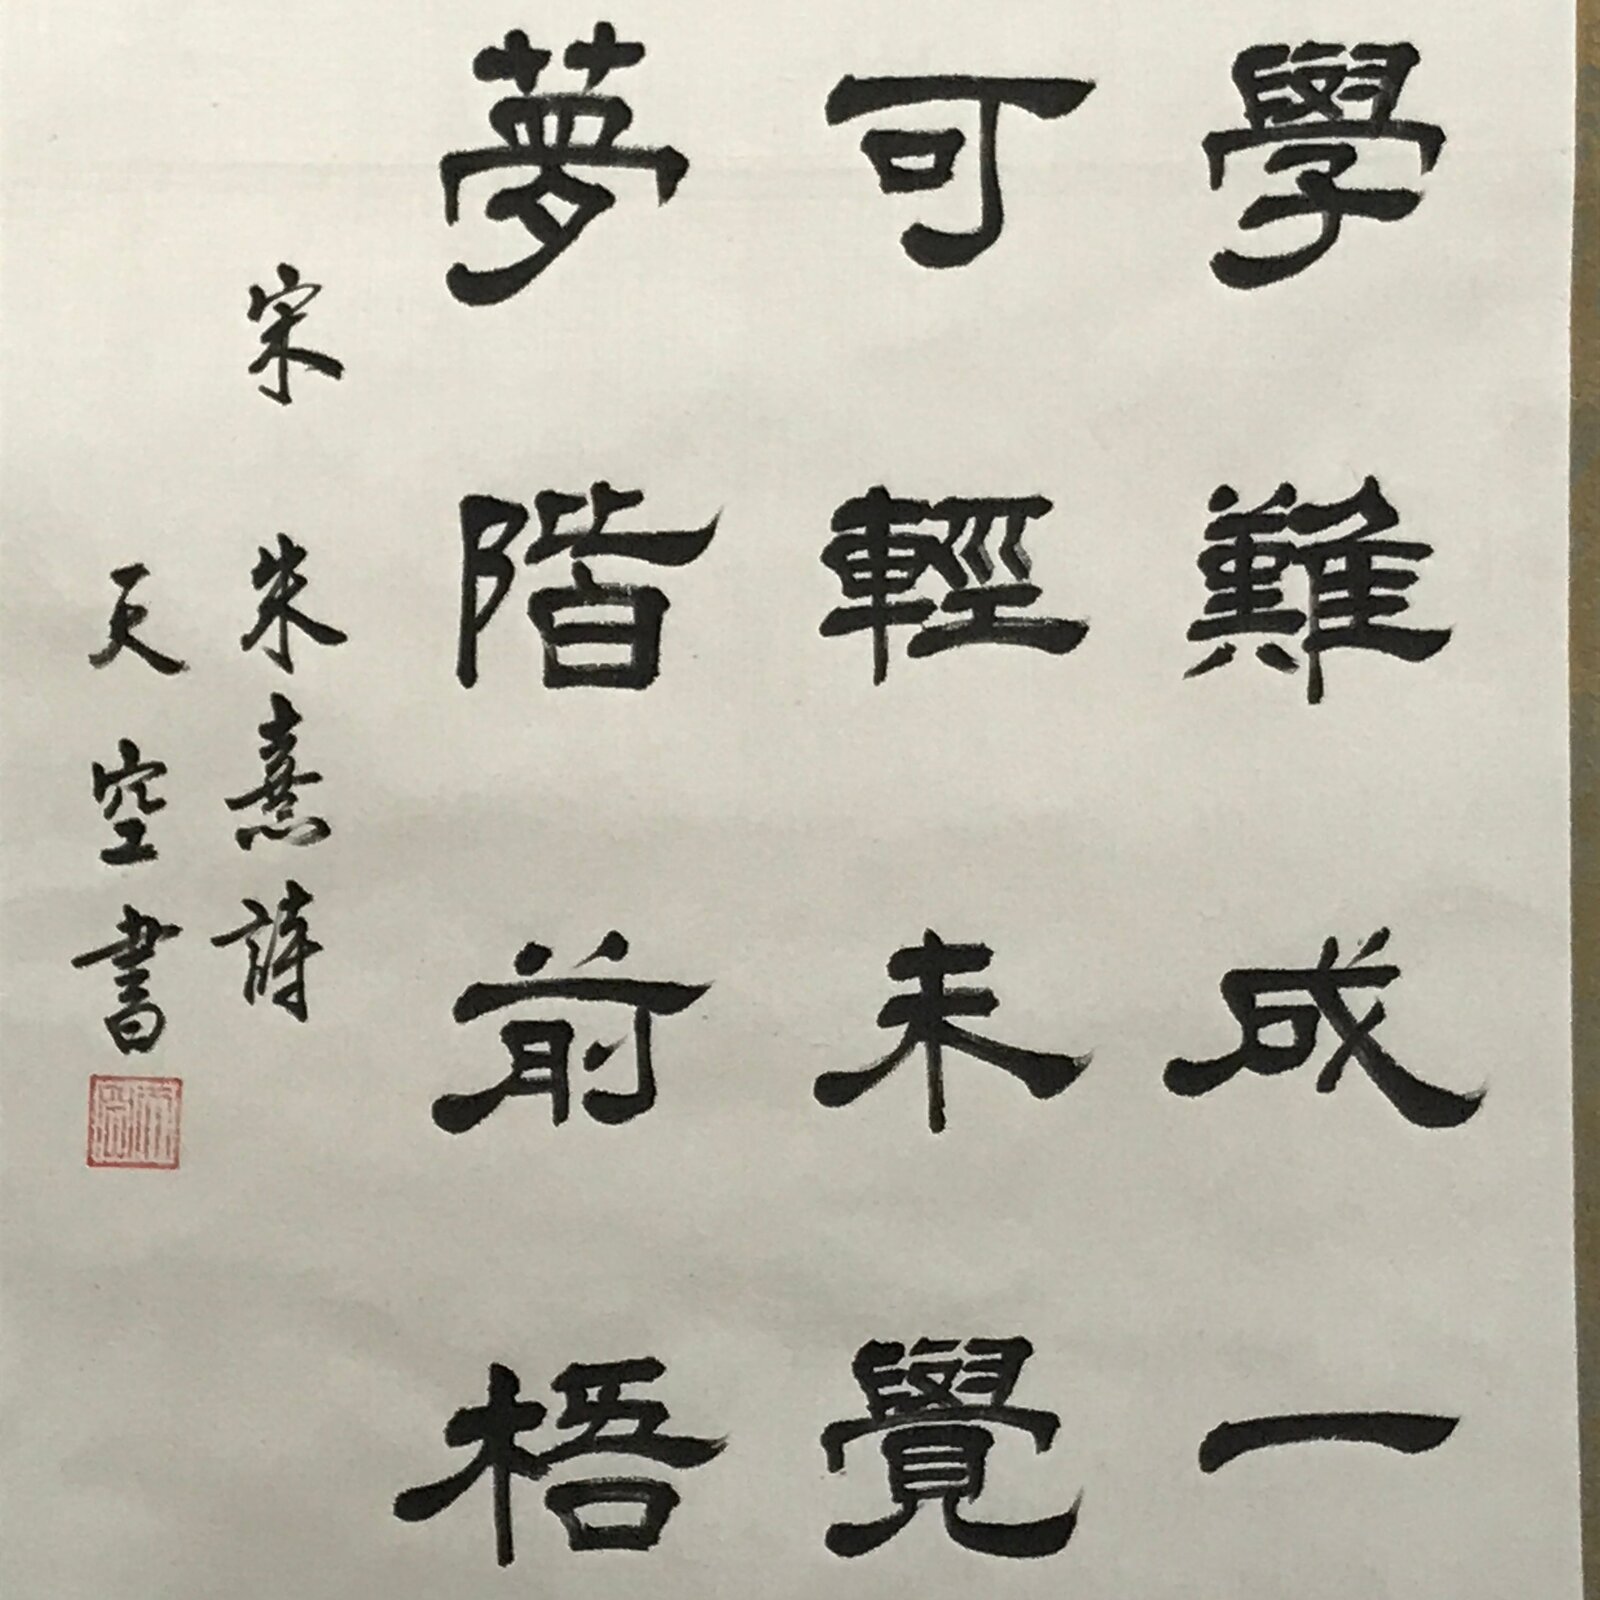 學難成一
可輕未覺
夢階前梧
宋 朱熹詩
天空書